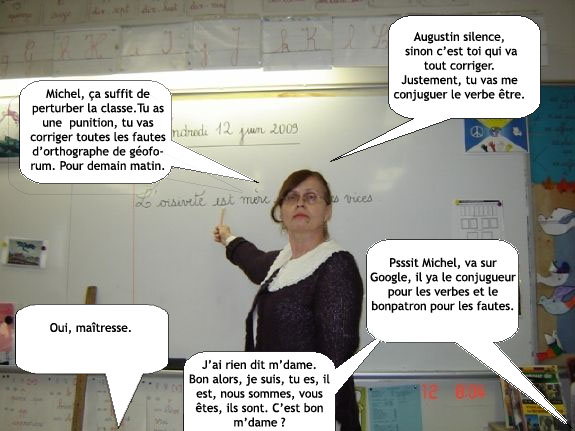 Augustin silence,
sinon c'est toi qui va
tout corriger.
Justement, tu vas me
conjuguer le verbe être.
Michel, ça suffit de
perturber la classe.Tu as
une punition, tu vas
corriger toutes les fautes
d'orthographe de géofo-
rum. Pour demain matin.
ndredi 12 juin 2009
L'oisiveté est mère es vices
Psssit Michel, va sur
Google, il ya le conjugueur
pour les verbes et le
bonpatron pour les fautes.
Oui, maîtresse.
J'ai rien dit m'dame.
Bon alors, je suis, tu es, il
est, nous sommes, vous
êtes, ils sont. C'est bon
m'dame ?
12 8:04